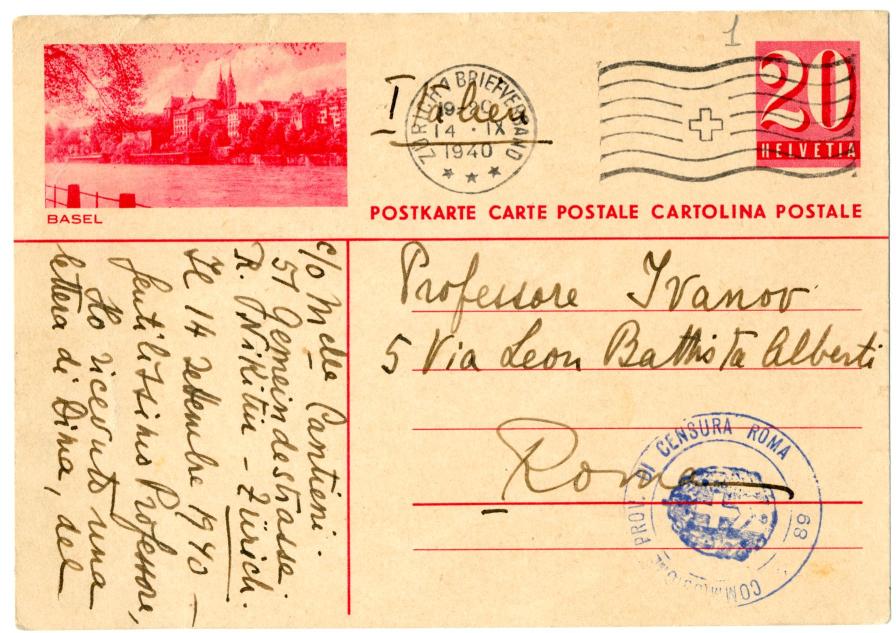 BASEL
1
Italien
ZÜRICH 1 BRIEFVERSAND
14 · IX
1940
20
HELVETIA
POSTKARTE CARTE POSTALE CARTOLINA POSTALE
Professore Ivanov
5 Via Leon Battista Alberti
Roma
COMMISSIONE PROV. DI CENSURA ROMA
68
c/o Melle Cantieni.
57 Gemeindestrasse.
R. Nikitin - Zürich.
Il 14 Settembre 1940 -
Gentilissimo Professore,
Ho ricevuto una
lettera di Dima, del